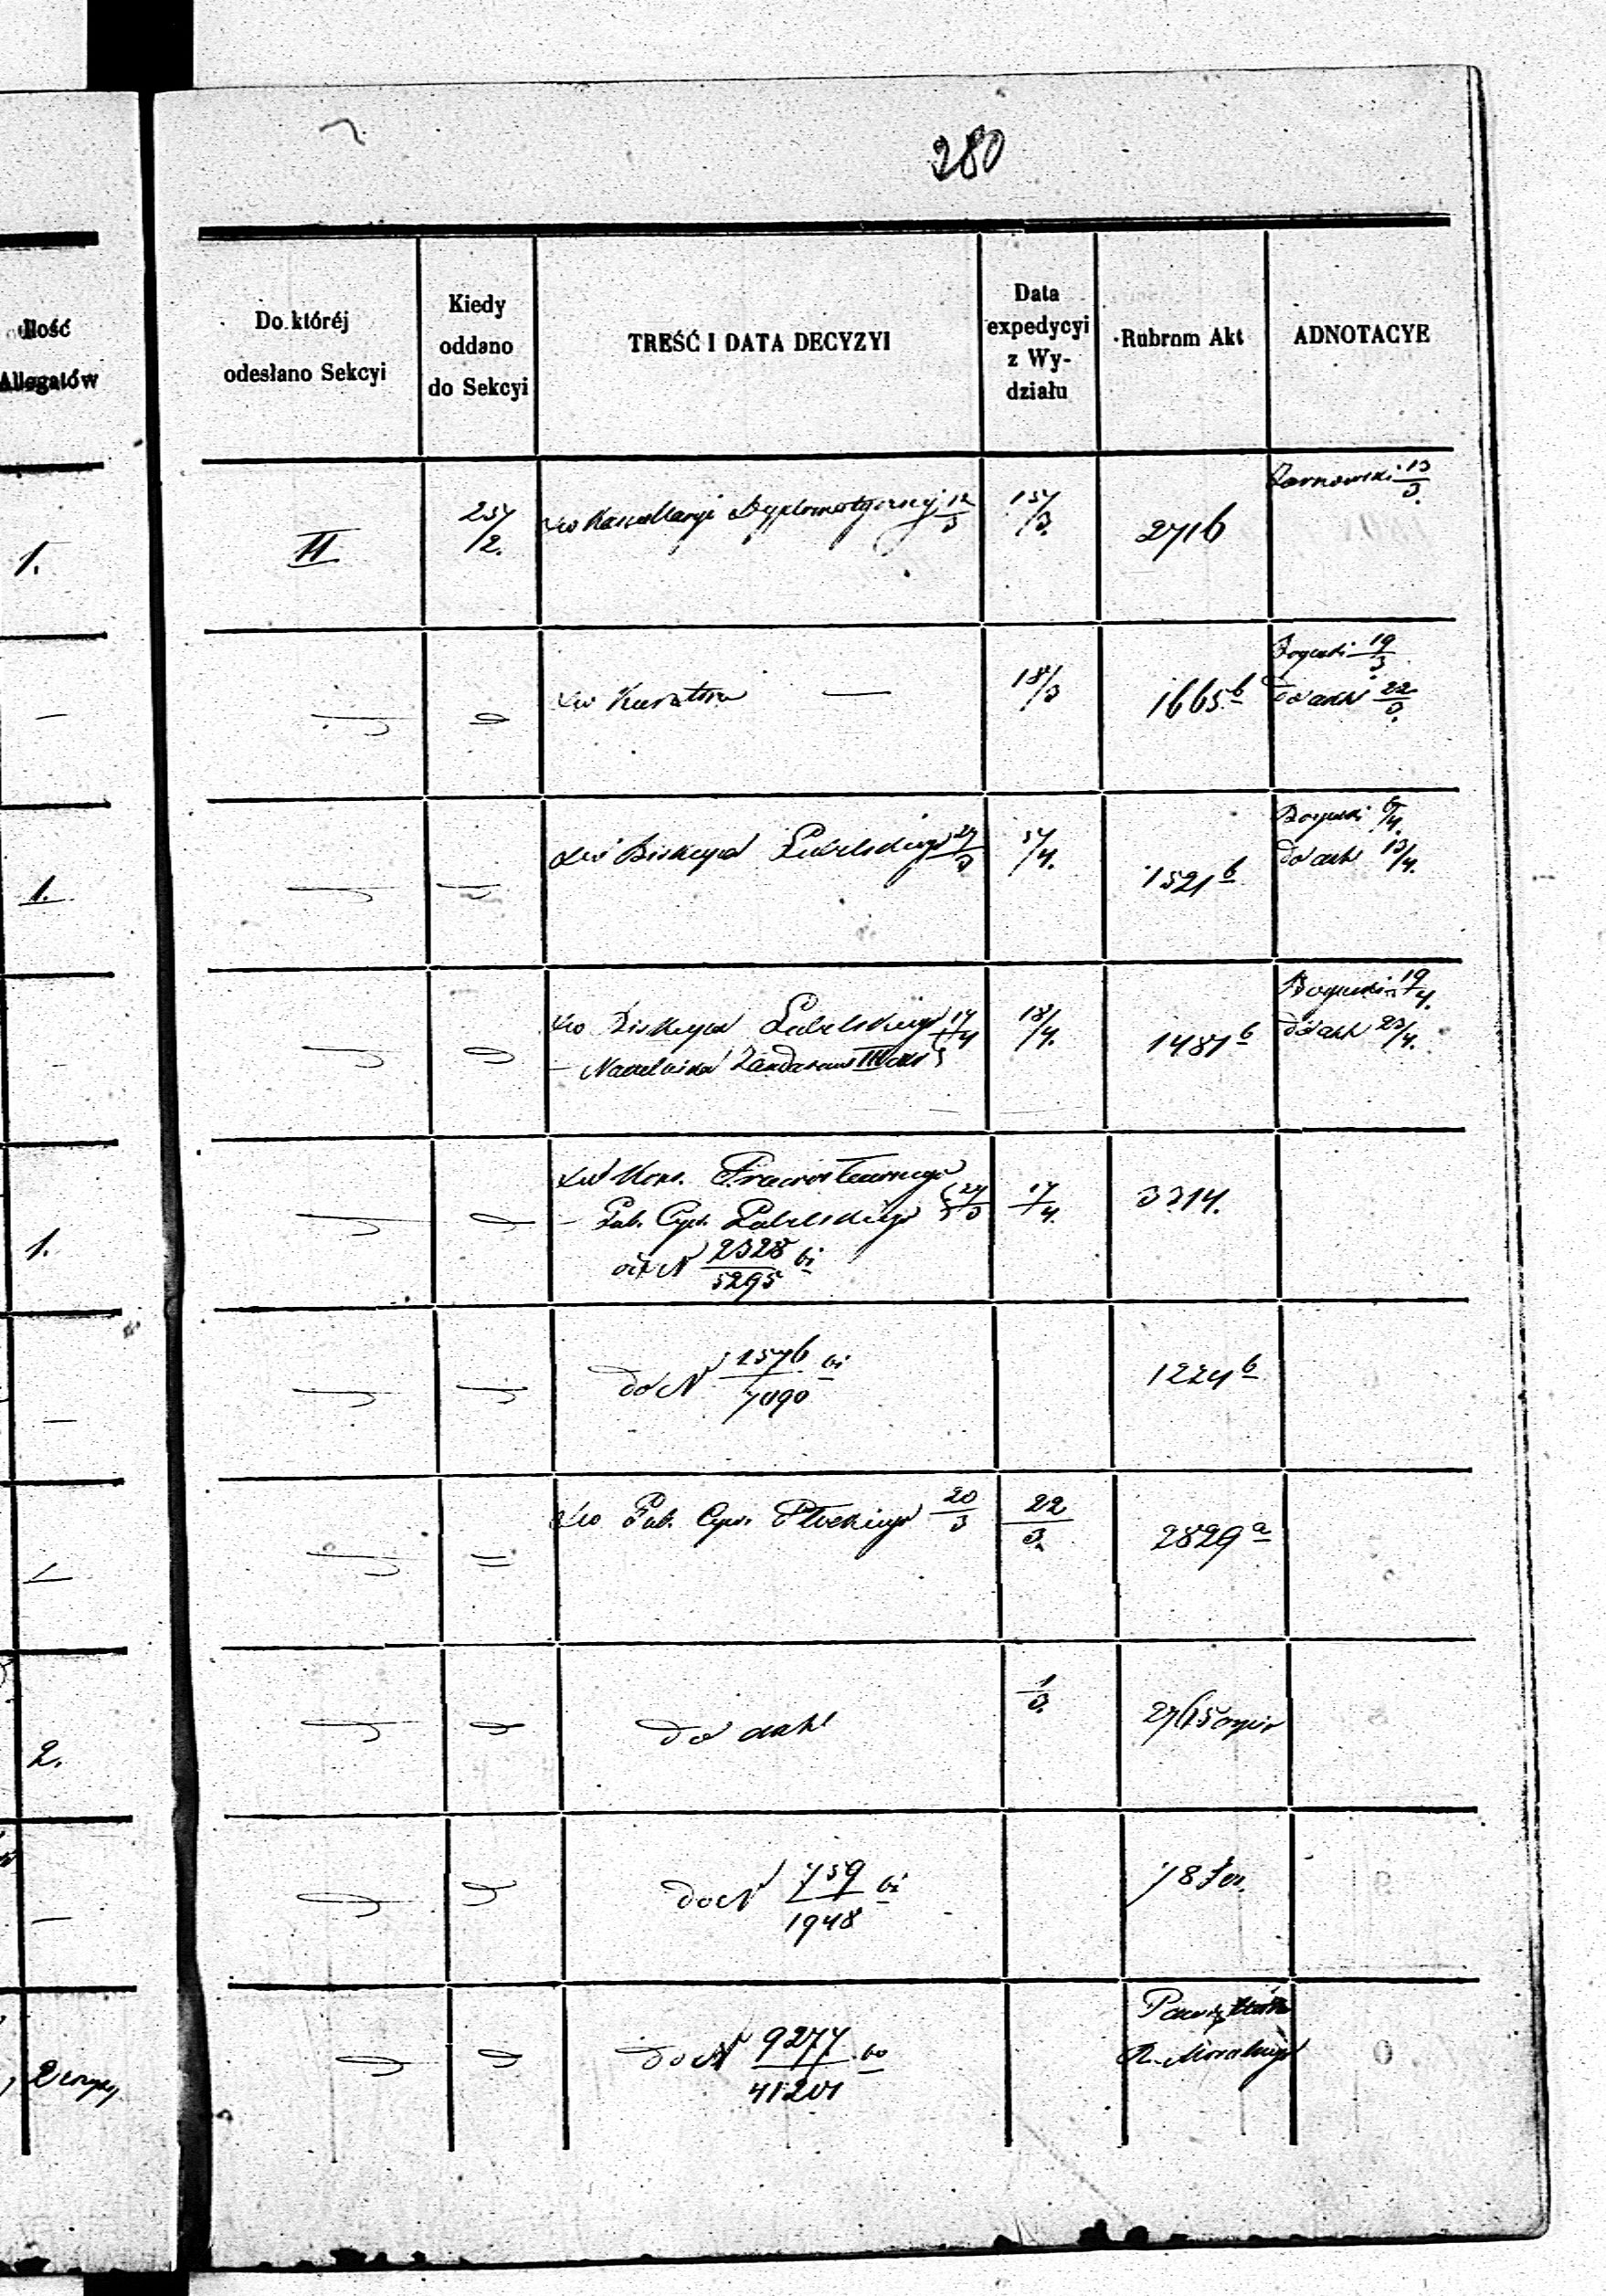 280
Ilość
Allegatów
Do któréj
odesłano Sekcyi
Kiedy
oddano
do Sekcyi
TREŚĆ I DATA DECYZYI
Data
expedycyi
z Wy-
działu
Rubrnm Akt
ADNOTACYE
1.
II
25/2.
do Kancellaryi Dyplomatycznej 12/3
15/3.
2716
13/3.
—
do Kuratora —
18/3
1665 b
19/3
do akt 22/3.
1.
do Biskupa Lubelskiego 27/3
5/4.
1521 b
Bogucki 6/4.
do akt 13/4.
do Biskupa Lubelskiego 17/4
— Naczelnika Żandarm III
18/4.
1487 b
Bogucki 19/4.
do akt 23/4.
1.
do Kons. Prawosławnego
— Gub. Cyw. Lubelskiego 27/3
do N 2328/5295
17/4.
3314.
—
do N 1576/7090
1224 b
do Gub. Cyw. Płockiego 20/3
22/3.
2829 a
2.
do akt
1/3.
2765
—
do N 759/1948
78
do N 9277/41201